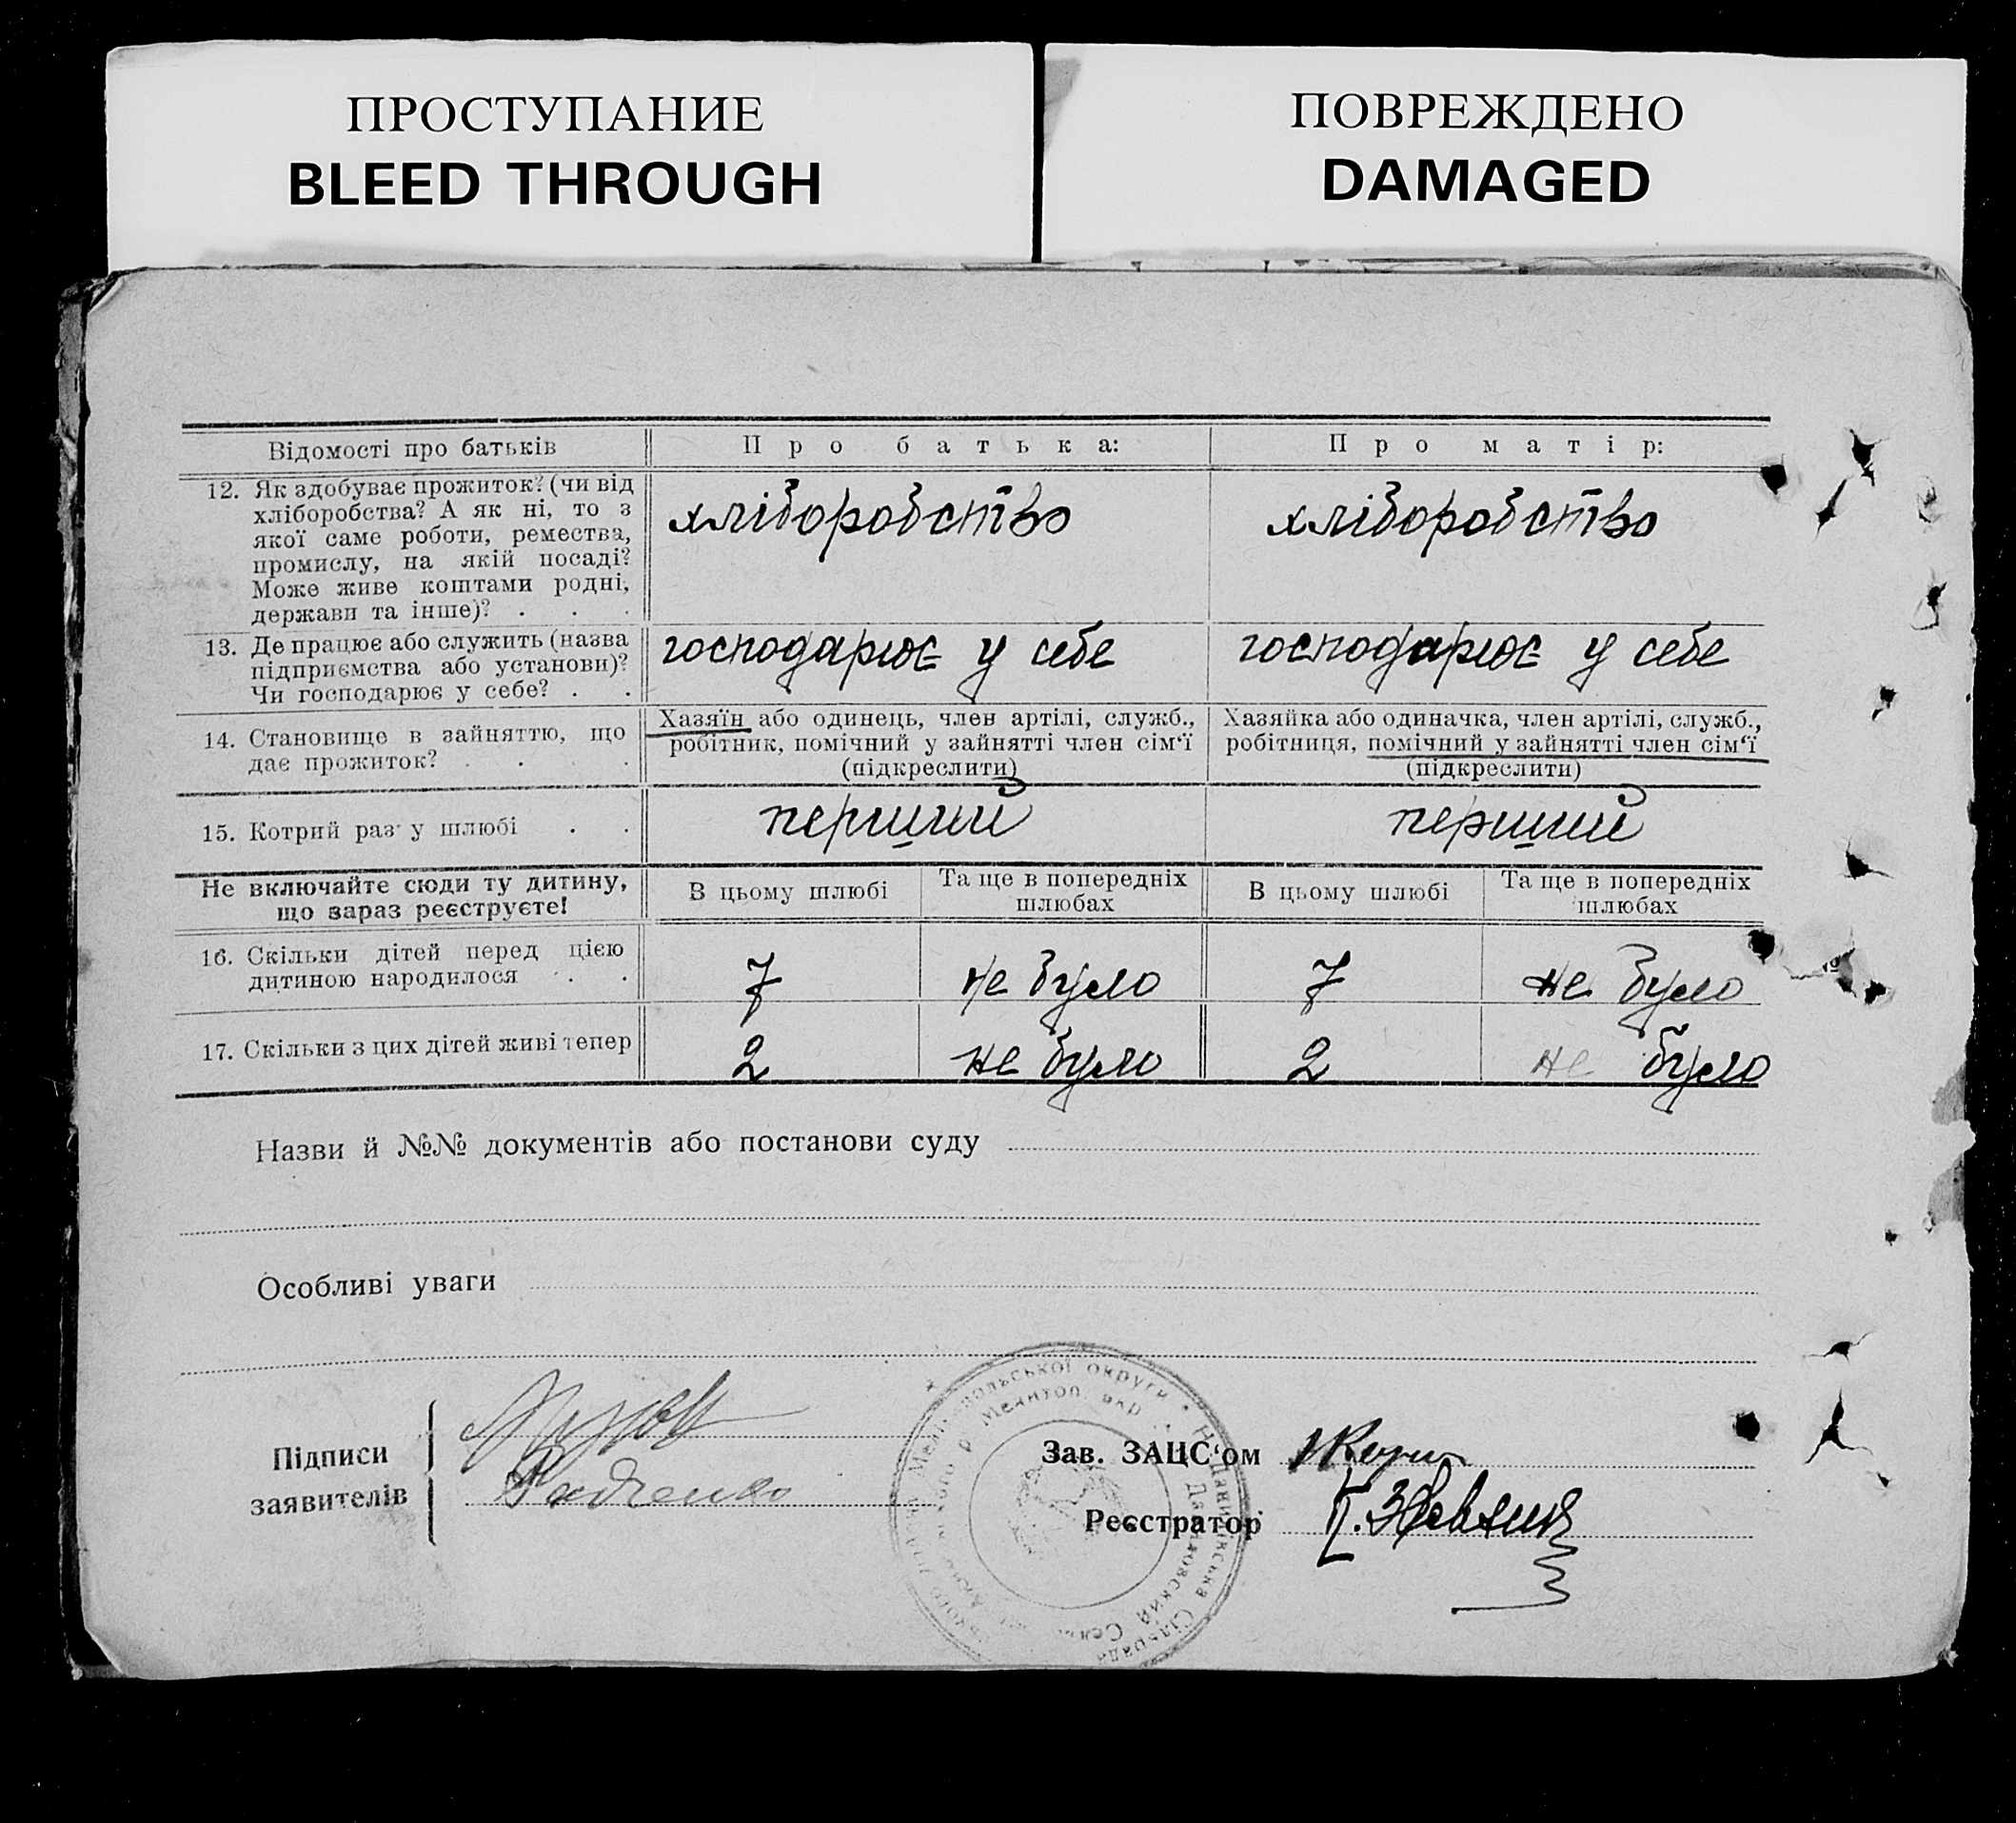 ПРОСТУПАНИЕ
BLEED THROUGH
ПОВРЕЖДЕНО
DAMAGED
Відомості про батьків
Про батька:
Про матір:
12. Як здобуває прожиток? (чи від
хліборобства? А як ні, то з
якої саме роботи, ремества,
промислу, на якій посаді?
Може живе коштами родні,
держави та інше)? . . .
хліборобство
хліборобство
13. Де працює або служить (назва
підприємства або установи)?
Чи господарює у себе? . .
господарює у себе
господарює у себе
14. Становище в зайняттю, що
дає прожиток? . . .
Хазяїн або одинець, член артілі, служб.,
робітник, помічний у зайнятті член сім‘ї
(підкреслити)
Хазяйка або одиначка, член артілі, служб.,
робітниця, помічний у зайнятті член сім‘ї
(підкреслити)
15. Котрий раз у шлюбі . .
перший
перший
Не включайте сюди ту дитину,
що зараз реєструєте!
В цьому шлюбі
Та ще в попередніх
шлюбах
В цьому шлюбі
Та ще в попередніх
шлюбах
16. Скільки дітей перед цією
дитиною народилося . .
7
не було
7
не було
17. Скільки з цих дітей живі тепер
2
не було
2
не було
Назви й №№ документів або постанови суду
Особливі уваги
Підписи
заявителів
Зав. ЗАЦС‘ом
Реєстратор
округи
Мелитоп. окр.
Данилівська Сільрада